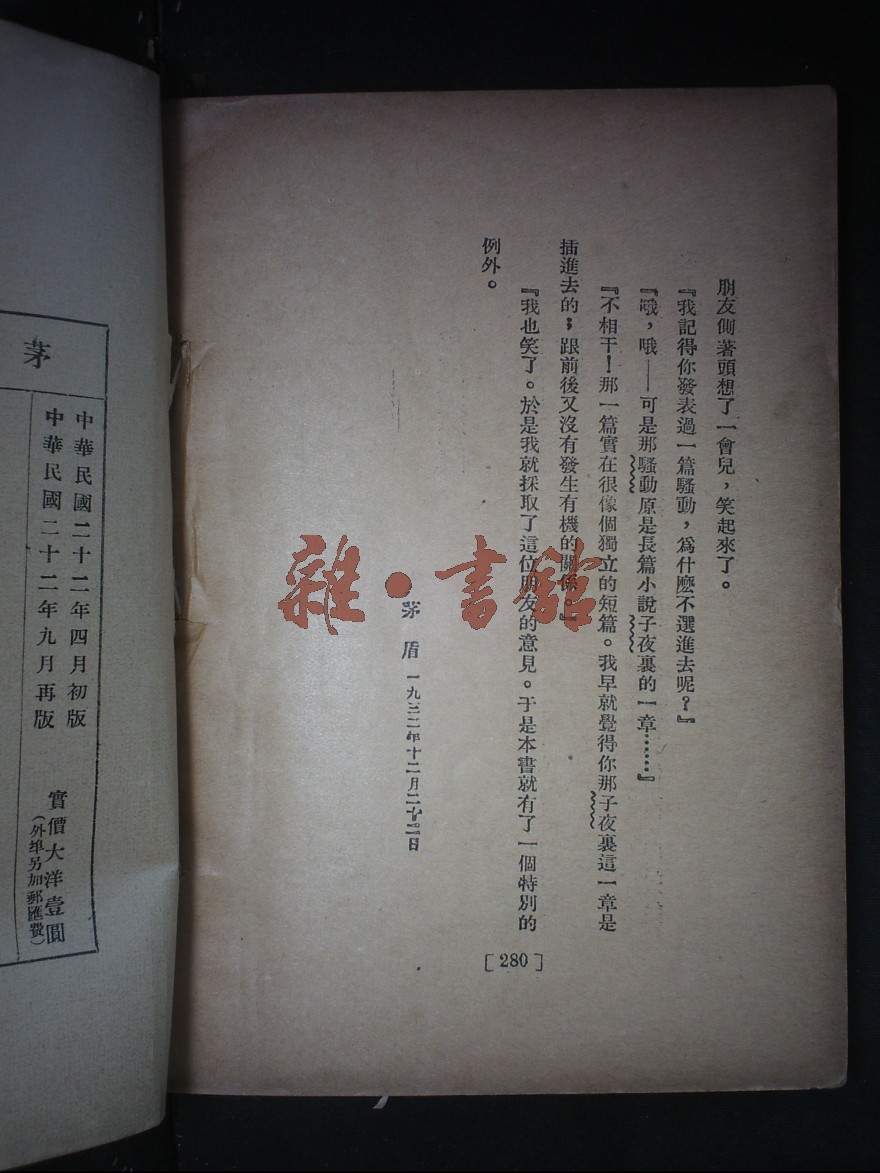 朋友側著頭想了一會兒，笑起來了。
『我記得你發表過一篇騷動，爲什麽不選進去呢？』
『哦，哦——可是那騷動原是長篇小說子夜裏的一章……』
『不相干！那一篇實在很像個獨立的短篇。我早就覺得你那子夜裏這一章是
插進去的；跟前後又沒有發生有機的關係。』
『我也笑了。於是我就採取了這位朋友的意見。于是本書就有了一個特別的
例外。
茅盾 一九三二年十二月二十二日
[280]
茅
中華民國二十二年四月初版
中華民國二十二年九月再版
實價大洋壹圓
（外埠另加郵匯費）
雜·書館